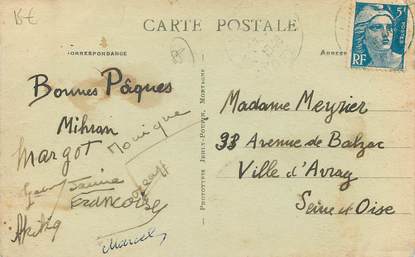 15€
CARTE POSTALE
CORRESPONDANCE
5F
POSTES
RF
Bonnes Pâques
Mihran
Monique
Margot
Françoise
Marcel
PHOTOTYPIE
MORTAGNE
Madame Meyrier
33 Avenue de Balzac
Ville d'Avray
Seine et Oise